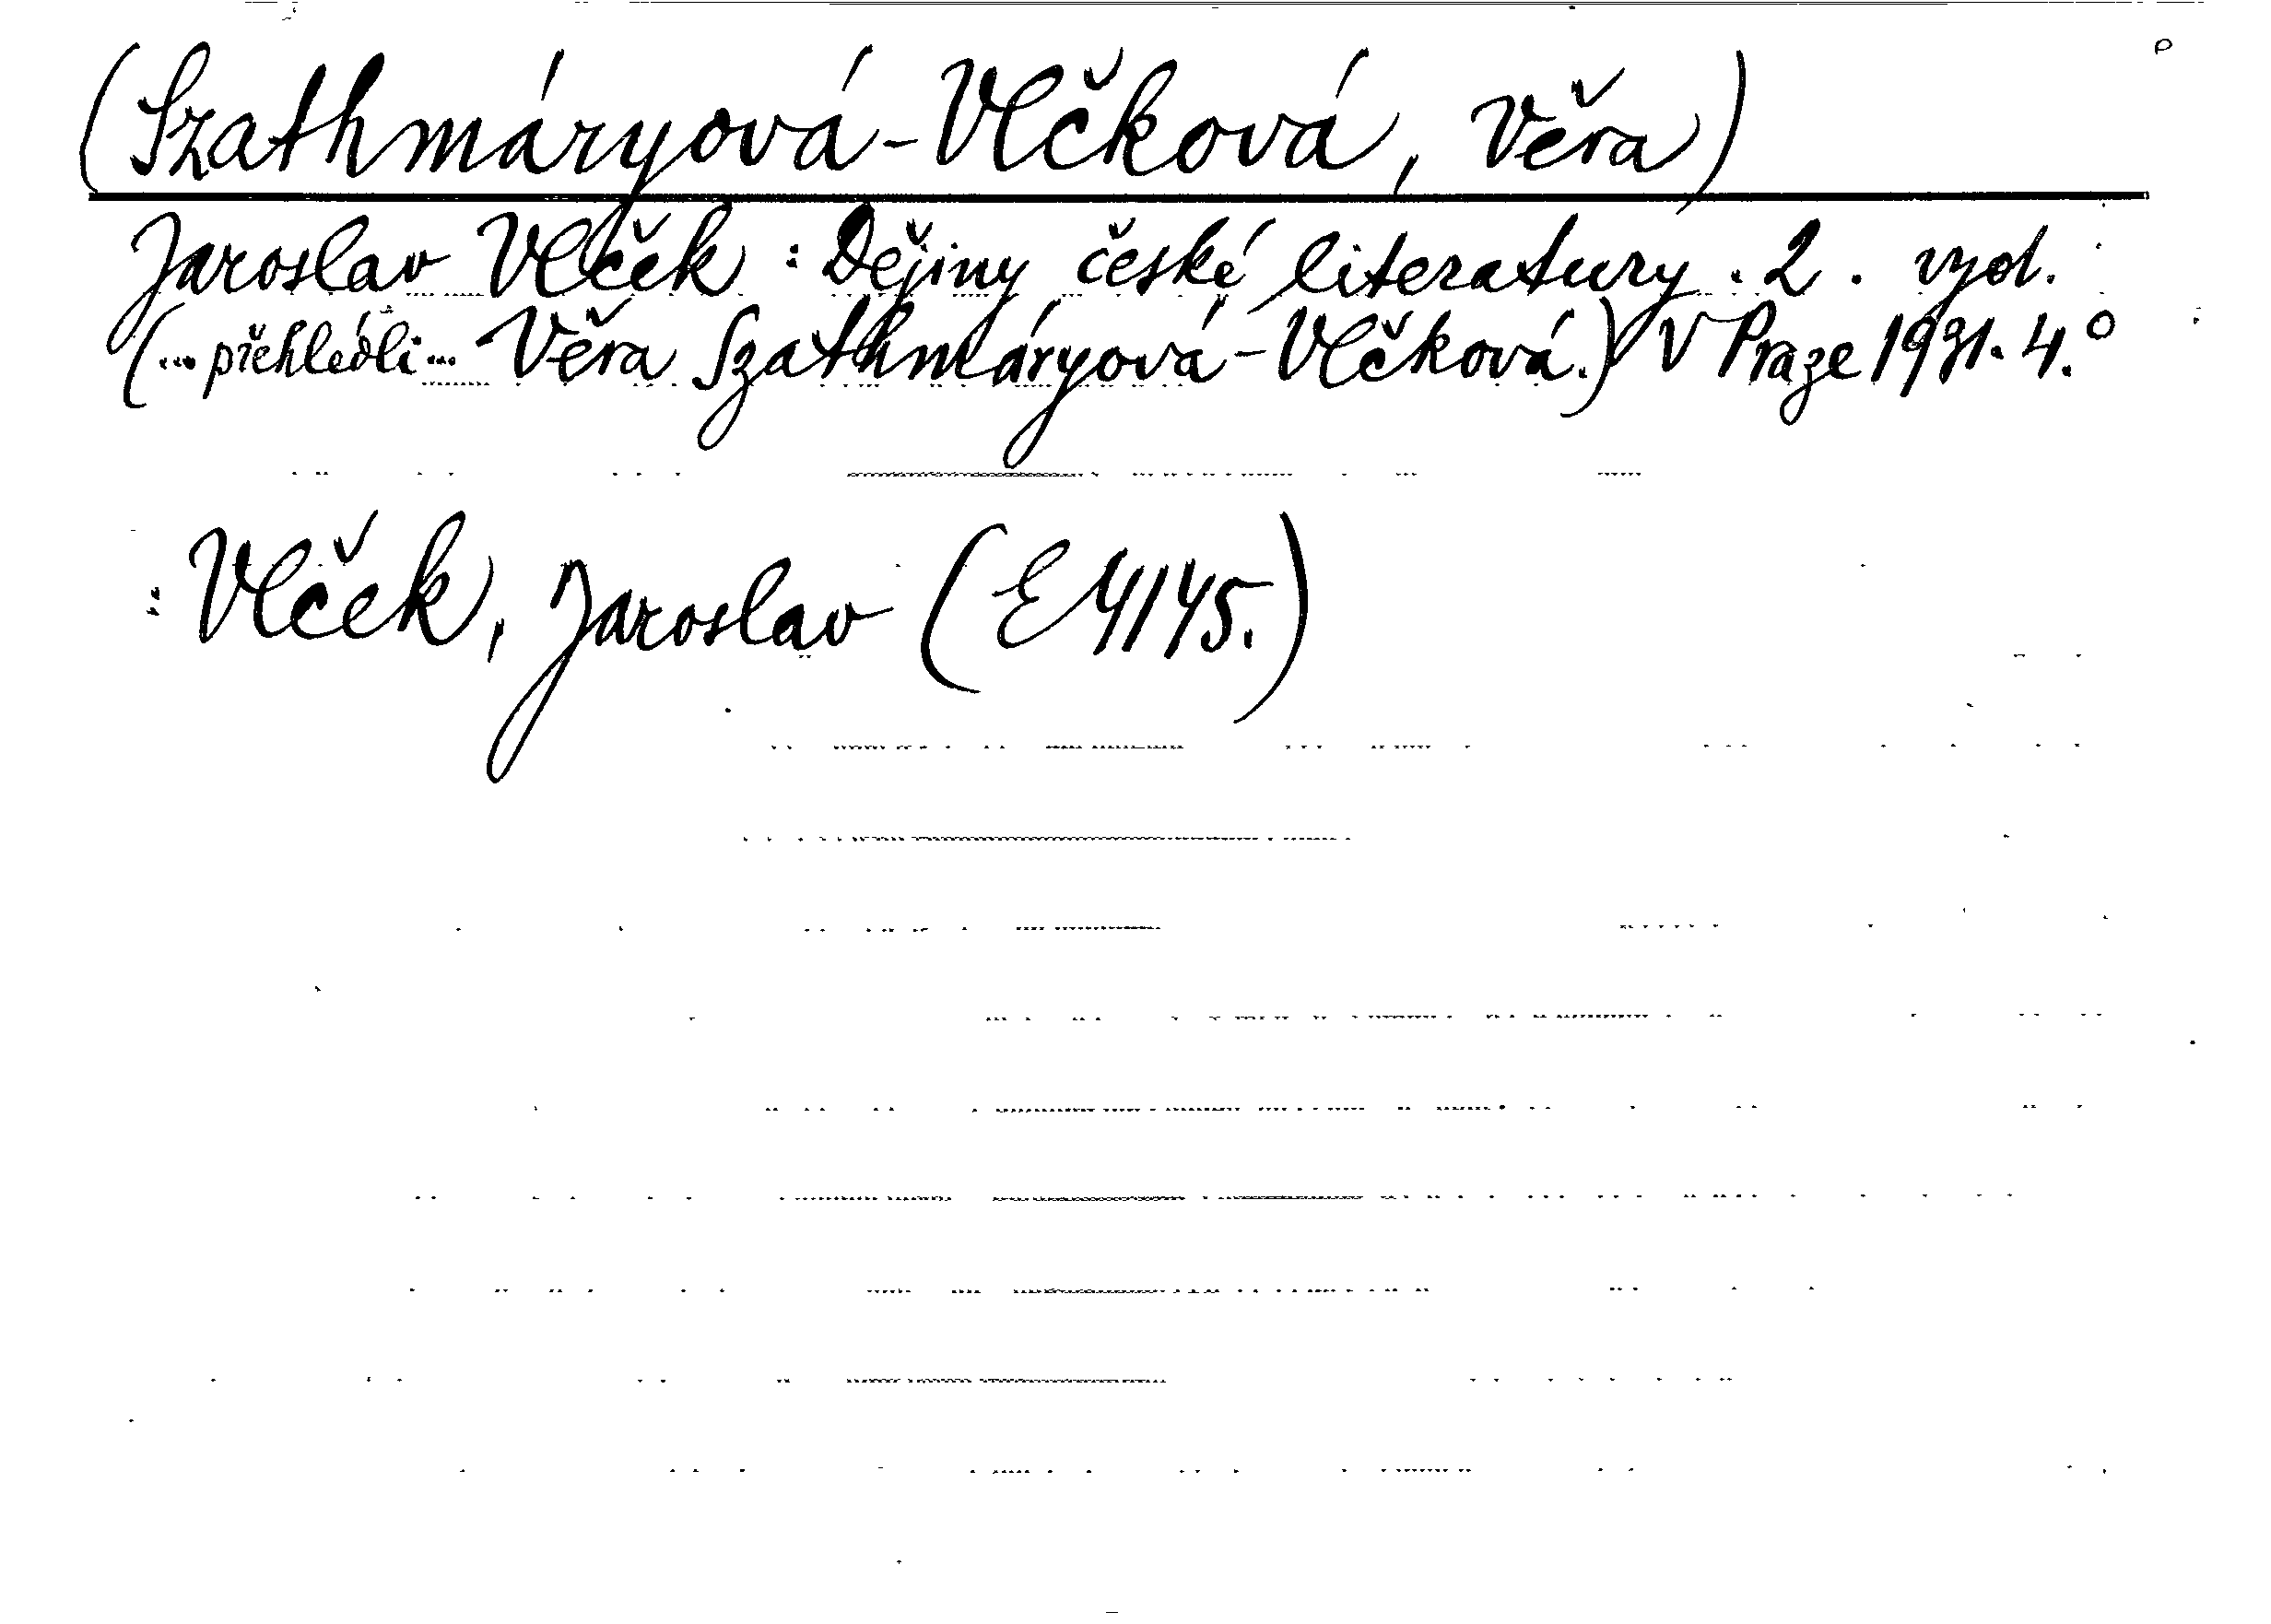 (Szathmáryová-Vlčková, Věra)
Jaroslav Vlček : Dějiny české literatury . 2 . vyd.
(... přehlédli ... Věra Szathmáryová-Vlčková.) V Praze 1931. 4.°
: Vlček, Jaroslav (E 4145.)